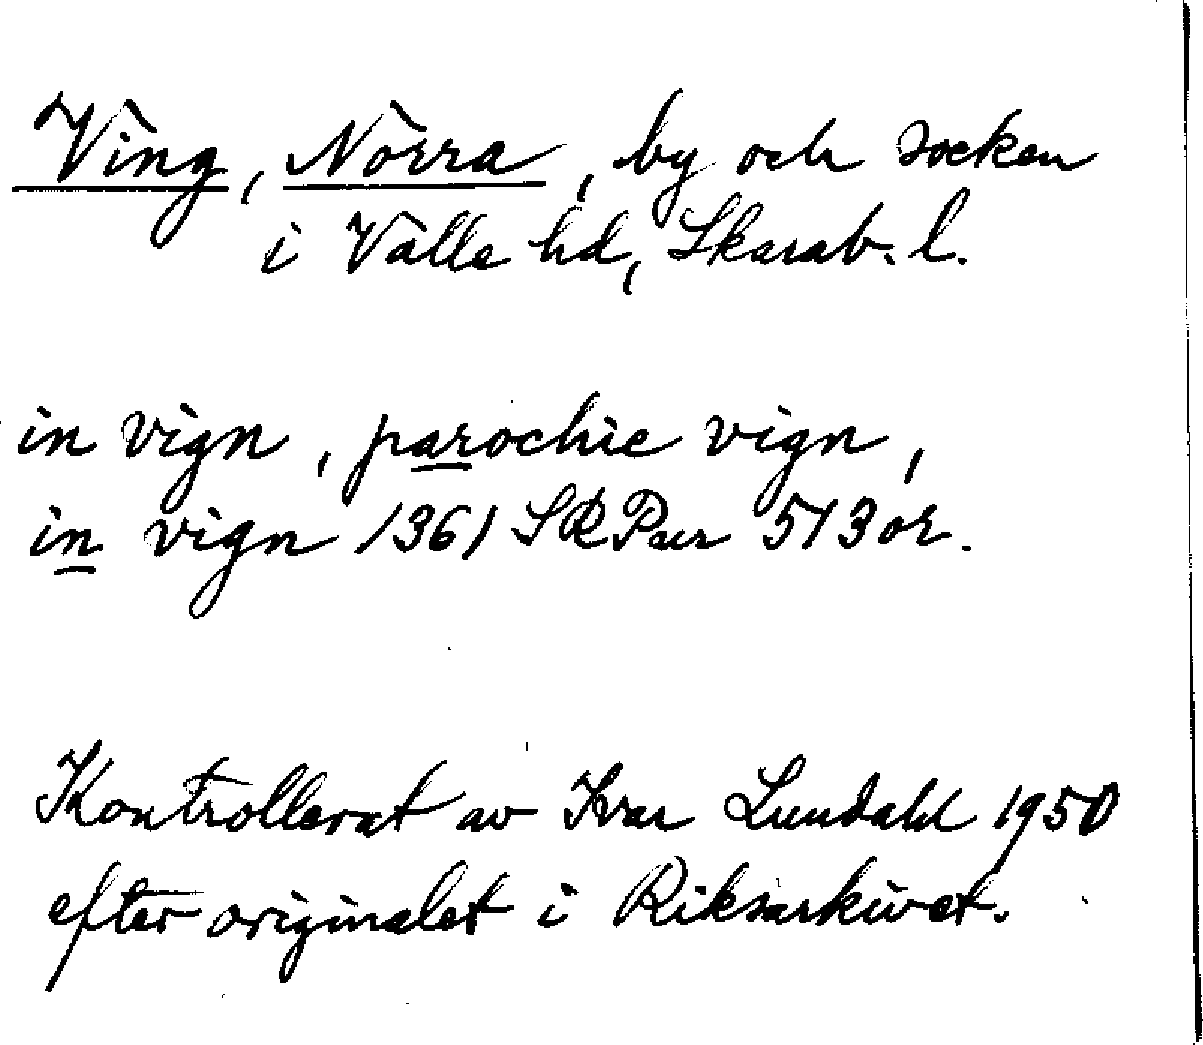 Ving, Norra, by och socken
i Valle hd, Skarab. l.
in vign, parochie vign,
in vign 1361 SRPer 513 or.
Kontrollerat av Ivar Lundahl 1950
efter originalet i Riksarkivet.